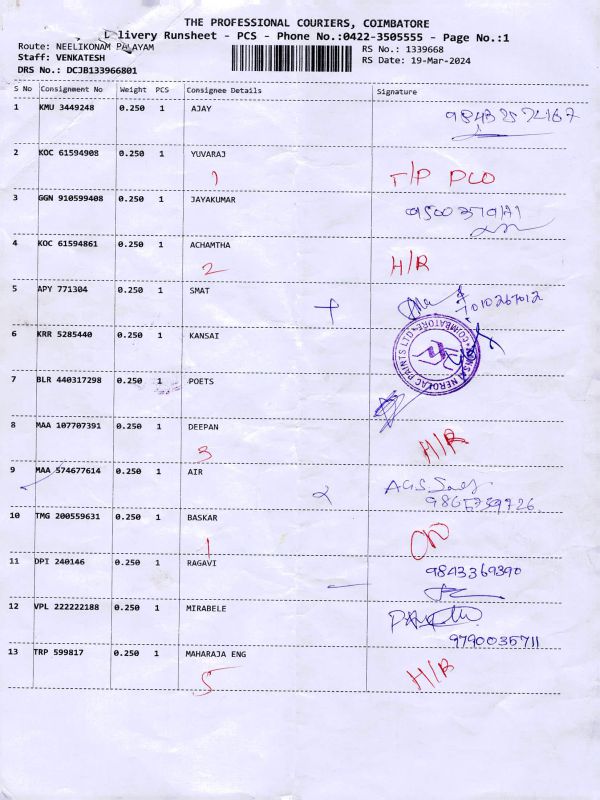 THE PROFESSIONAL COURIERS, COIMBATORE
Delivery Runsheet - PCS - Phone No.:0422-3505555 - Page No.:1
Route: NEELIKONAM PALAYAM
RS No.: 1339668
Staff: VENKATESH
RS Date: 19-Mar-2024
DRS No.: DCJB133966801
S No Consignment No Weight PCS Consignee Details Signature
1 KMU 3449248 0.250 1 AJAY
2 KOC 61594908 0.250 1 YUVARAJ
1 T/P PLO
3 GGN 910599408 0.250 1 JAYAKUMAR
4 KOC 61594861 0.250 1 ACHAMTHA
2 H/R
5 APY 771304 0.250 1 SMAT
7010267012
6 KRR 5285440 0.250 1 KANSAI
KANSAI NEROLAC PAINTS LTD COIMBATORE
7 BLR 440317298 0.250 1 POETS
8 MAA 107707391 0.250 1 DEEPAN
3 H/R
9 MAA 574677614 0.250 1 AIR
9865759726
10 TMG 200559631 0.250 1 BASKAR
1
11 DPI 240146 0.250 1 RAGAVI
9843369390
12 VPL 222222188 0.250 1 MIRABELE
9790035711
13 TRP 599817 0.250 1 MAHARAJA ENG
5 H/R